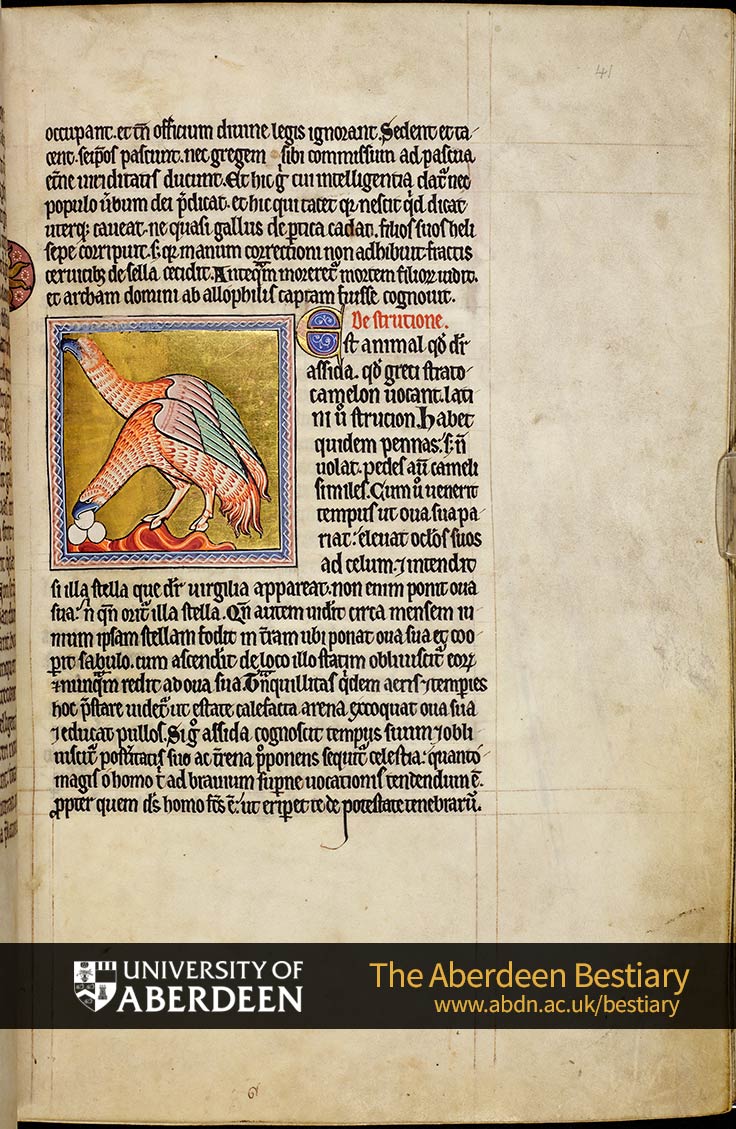 41
occupant. et tn̄ officium diuine legis ignorant. Sedent et ta-
cent. seip̄os pascunt. nec gregem sibi commissum ad pascua
et̄ne uiriditatis ducunt. Et hic g̊ cui intelligentia dat̄ nec
populo ūbum dei p̄dicat. et hic qui tacet qr nescit qd dicat
uterq; caueat. ne quasi gallus de ptica cadat. filios suos heli
sepe corripuit. s; qr manum correctioni non adhibuit fractis
ceruicib; de sella cecidit. Anteq̄m moreret̄ mortem filioꝝ uidit.
et archam domini ab allophilis captam fuisse cognouit.
De strutione.
Est animal qð dr̄
assida. qð greci strato
camelon uocant. lati
ni ū strucion. Habet
quidem pennas. s; n̄
uolat. pedes aū cameli
similes. Cum ū uenerit
tempus ut oua sua pa-
riat. eleuat oclos suos
ad celum. ⁊ intendit
si illa stella que dr̄ uirgilia appareat. non enim ponit oua
sua. n̄ qn̄ orit̄ illa stella. Qn̄ autem uidit circa mensem iu-
nium ipsam stellam fodit in t̄ram ubi ponat oua sua et coo-
pit sabulo. cum ascendit de loco illo statim obliuiscit̄ eoꝝ
⁊ nunq̄m redit ad oua sua. Tn̄quillitas q̇dem aeris ⁊ temperies
hoc p̄stare uidet̄ ut estate calefacta arena excoquat oua sua
⁊ educat pullos. Si g̊ assida cognoscit tempus suum ⁊ obli
uiscit̄ post̄itatis sue ac t̄rena p̊ponens sequit̄ celestia. quanto
magis o homo t̄ ad brauium sup̄ne uocationis tendendum ē.
ꝓpter quem dś homo fc̄s ē. ut eripet te de potestate tenebrarū.
UNIVERSITY OF
ABERDEEN
The Aberdeen Bestiary
www.abdn.ac.uk/bestiary